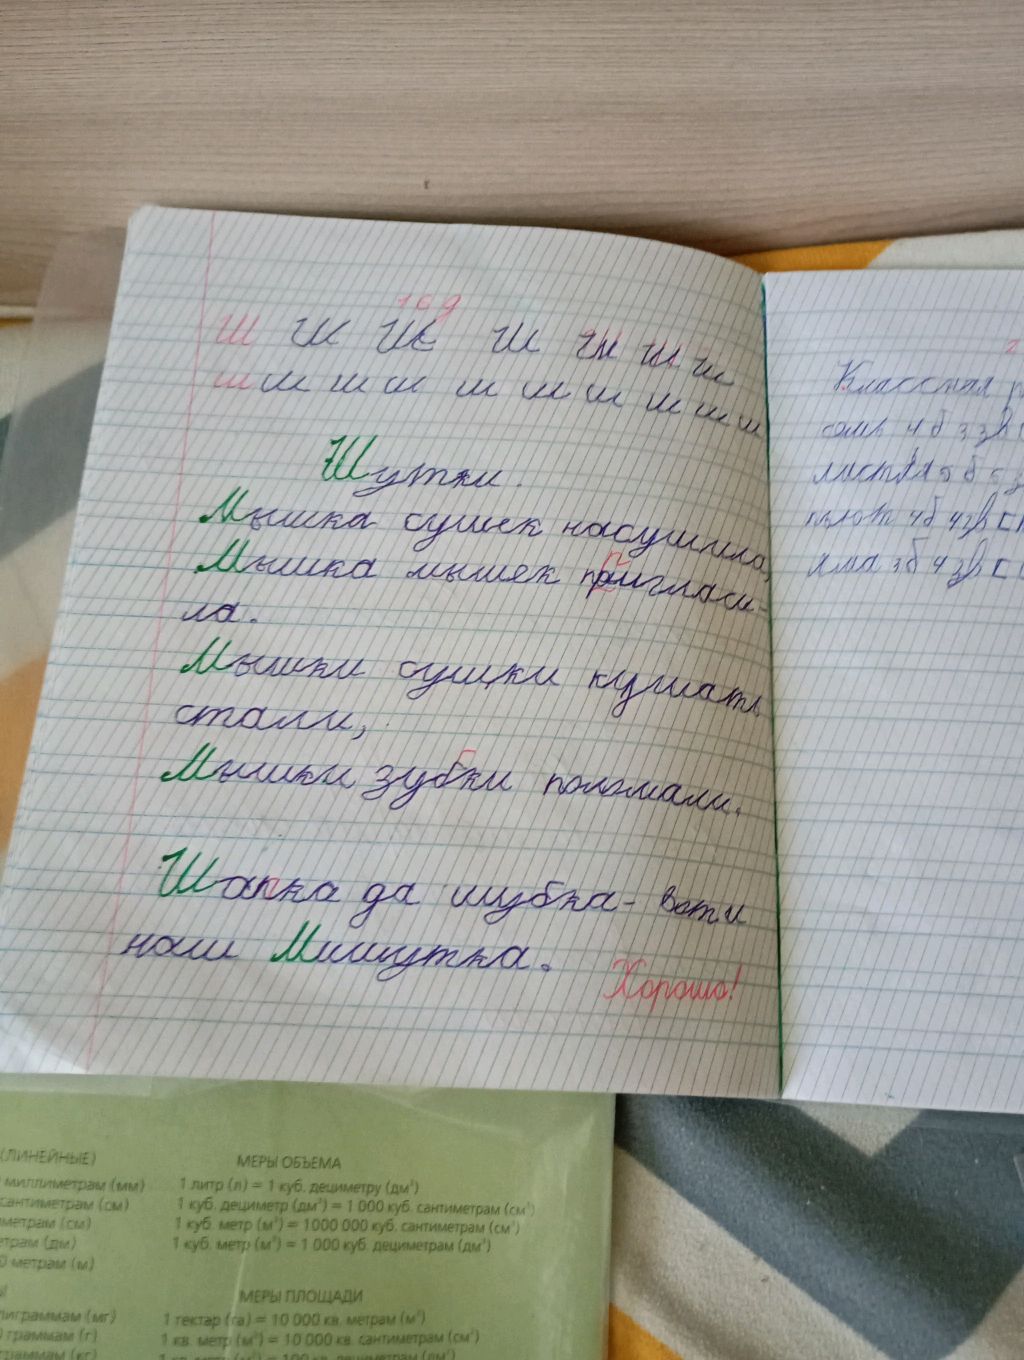 16 д
Ш Ш Ш Ш Ш Ш Ш
ш ш ш ш ш ш ш ш ш ш
Шутки.
Мышка сушек насушила,
Мышка мышек пригласи-
ла.
Мышки сушки кушать
стали,
Мышки зубки поломали.
Шапка да шубка - вот и
наш Мишутка.
Хорошо!
2
Классная р
соль 4 б 3 зв
листья 5 б 5 з
4 б 4 зв
яма 3 б 4 зв
(ЛИНЕЙНЫЕ)
миллиметрам (мм)
сантиметрам (см)
метрам (см)
етрам (дм)
0 метрам (м)
МЕРЫ ОБЪЕМА
1 литр (л) = 1 куб. дециметру (дм³)
1 куб. дециметр (дм³) = 1 000 куб. сантиметрам (см³)
1 куб. метр (м³) = 1000 000 куб. сантиметрам (см³)
1 куб. метр (м³) = 1 000 куб. дециметрам (дм³)
лиграммам (мг)
граммам (г)
граммам (кг)
МЕРЫ ПЛОЩАДИ
1 гектар (га) = 10 000 кв. метрам (м²)
1 кв. метр (м²) = 10 000 кв. сантиметрам (см²)
1 кв. метр (м²) = 100 кв. дециметрам (дм²)